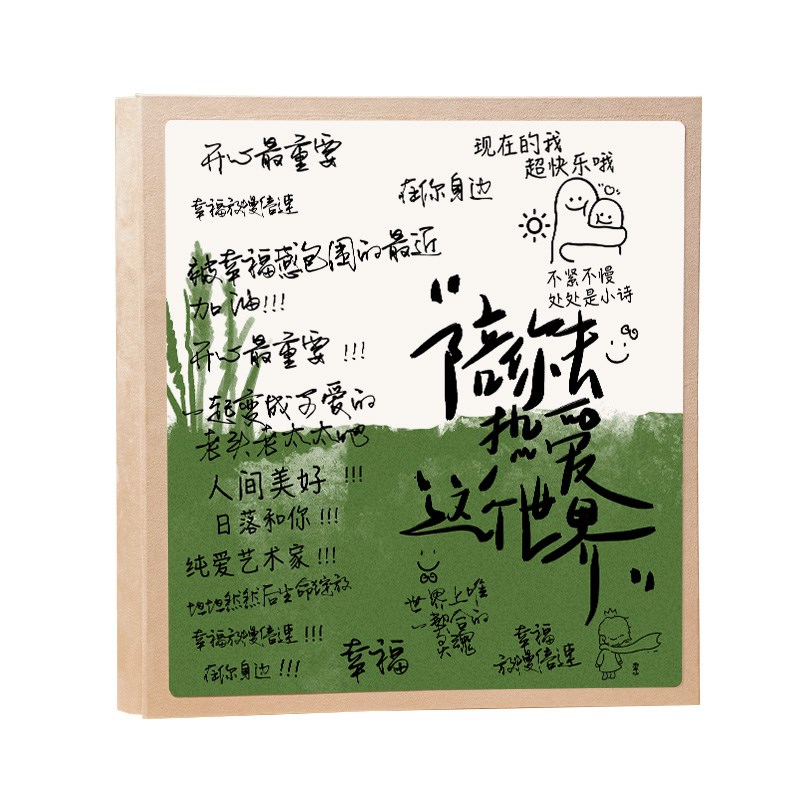 开心最重要
现在的我
超快乐哦
幸福放慢倍速
在你身边
被幸福感包围的最近
加油!!!
不紧不慢
处处是小诗
开心最重要!!!
"陪你去
热爱
这个世界"
一起变成可爱的
老头老太太吧
!!!
人间美好
日落和你!!!
纯爱艺术家!!!
坦坦然然后生命绽放
世界上唯
一契合的
灵魂
幸福放慢倍速!!!
在你身边!!!
幸福
幸福
放慢倍速